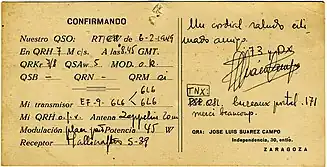 CONFIRMANDO
Nuestro QSO: RT/CW de 6-2-1949
En QRH 7 M c/s. A las 8.45 GMT.
QRK r 7/8 QSA w 5 MOD. o.k.
QSB - QRN - QRM si
6L6
Mi transmisor EF-9-6L6 6L6
Mi QRH Antena Zeppelin
Modulación Potencia 45 W
Receptor Hallicrafters S-39
Un cordial saludo esti
mado amigo.
73 y DX
TNX
PSE QSL bureaux postal .171
merci beaucoup.
QRA: JOSE LUIS SUAREZ CAMPO
Independencia, 30, entlo.
ZARAGOZA